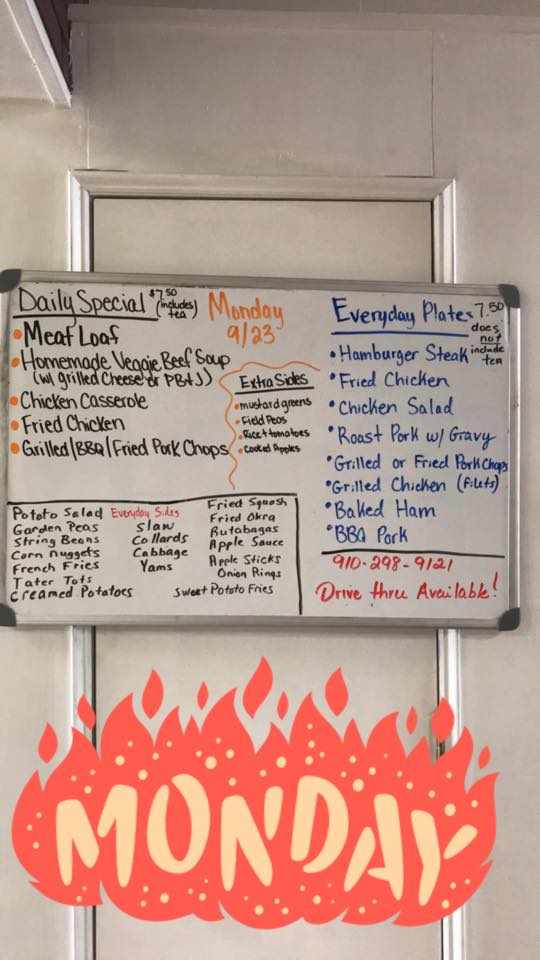 Daily Special $7.50 (includes tea)
Monday
9/23
• Meat Loaf
• Homemade Veggie Beef Soup
(w/ grilled Cheese or PB+J)
• Chicken Casserole
• Fried Chicken
• Grilled/BBQ/Fried Pork Chops
Extra Sides
• mustard greens
• Field Peas
• Rice + tomatoes
• Cooked Apples
Everyday Plates 7.50
does not include tea
• Hamburger Steak
• Fried Chicken
• Chicken Salad
• Roast Pork w/ Gravy
• Grilled or Fried Pork Chops
• Grilled Chicken (filets)
• Baked Ham
• BBQ Pork
Everyday Sides
Potato Salad
Garden Peas
String Beans
Corn nuggets
French Fries
Tater Tots
Creamed Potatoes
Slaw
Collards
Cabbage
Yams
Fried Squash
Fried Okra
Rutabagas
Apple Sauce
Apple Sticks
Onion Rings
Sweet Potato Fries
910-298-9121
Drive thru Available!
MONDAY